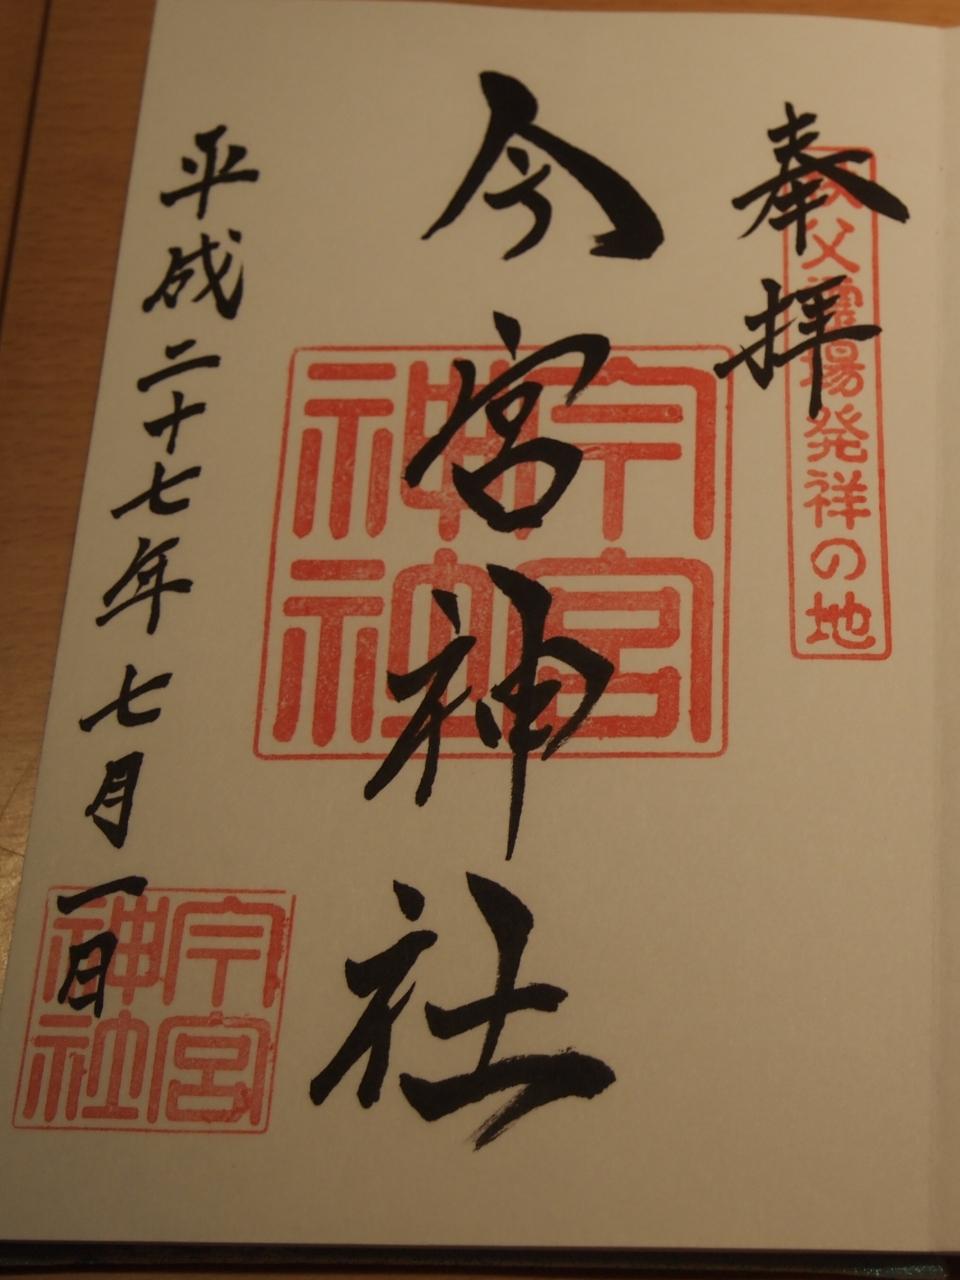 奉拝
秩父霊場発祥の地
今宮神社
今宮神社
平成二十七年七月一日
今宮神社